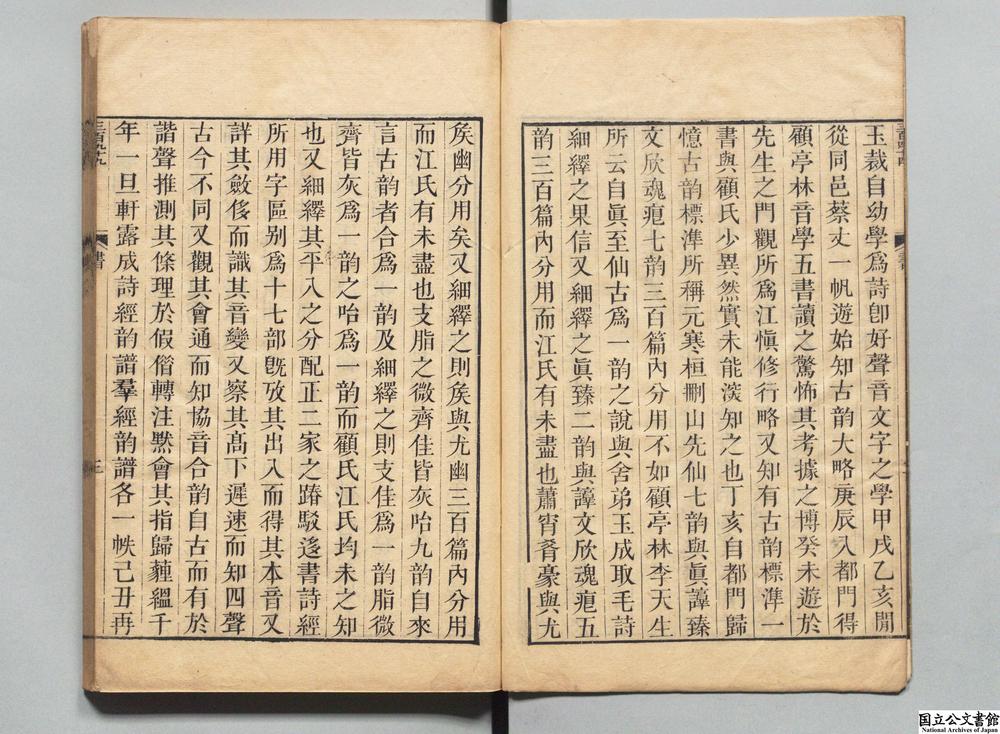 玉裁自幼學爲詩卽好聲音文字之學甲戌乙亥閒
從同邑蔡丈一帆遊始知古韵大略庚辰入都門得
顧亭林音學五書讀之驚怖其考據之博癸未遊於
先生之門觀所爲江愼修行略又知有古韵標準一
書與顧氏少異然實未能湥知之也丁亥自都門歸
憶古韵標準所稱元寒桓刪山先仙七韵與眞諄臻
文欣魂痕七韵三百篇內分用不如顧亭林李天生
所云自眞至仙古爲一韵之說與舍弟玉成取毛詩
細繹之果信又細繹之眞臻二韵與諄文欣魂痕五
韵三百篇內分用而江氏有未盡也蕭宵肴豪與尤
矦幽分用矣又細繹之則矦與尤幽三百篇內分用
而江氏有未盡也支脂之微齊佳皆灰咍九韵自來
言古韵者合爲一韵及細繹之則支佳爲一韵脂微
齊皆灰爲一韵之咍爲一韵而顧氏江氏均未之知
也又細繹其平入之分配正二家之踳駁遂書詩經
所用字區別爲十七部旣攷其出入而得其本音又
詳其斂侈而識其音變又察其高下遲速而知四聲
古今不同又觀其會通而知協音合韵自古而有於
諧聲推測其條理於假俻轉注黙會其指歸蕴緼千
年一旦軒露成詩經韵譜羣經韵譜各一帙己丑再
書
三
国立公文書館
National Archives of Japan